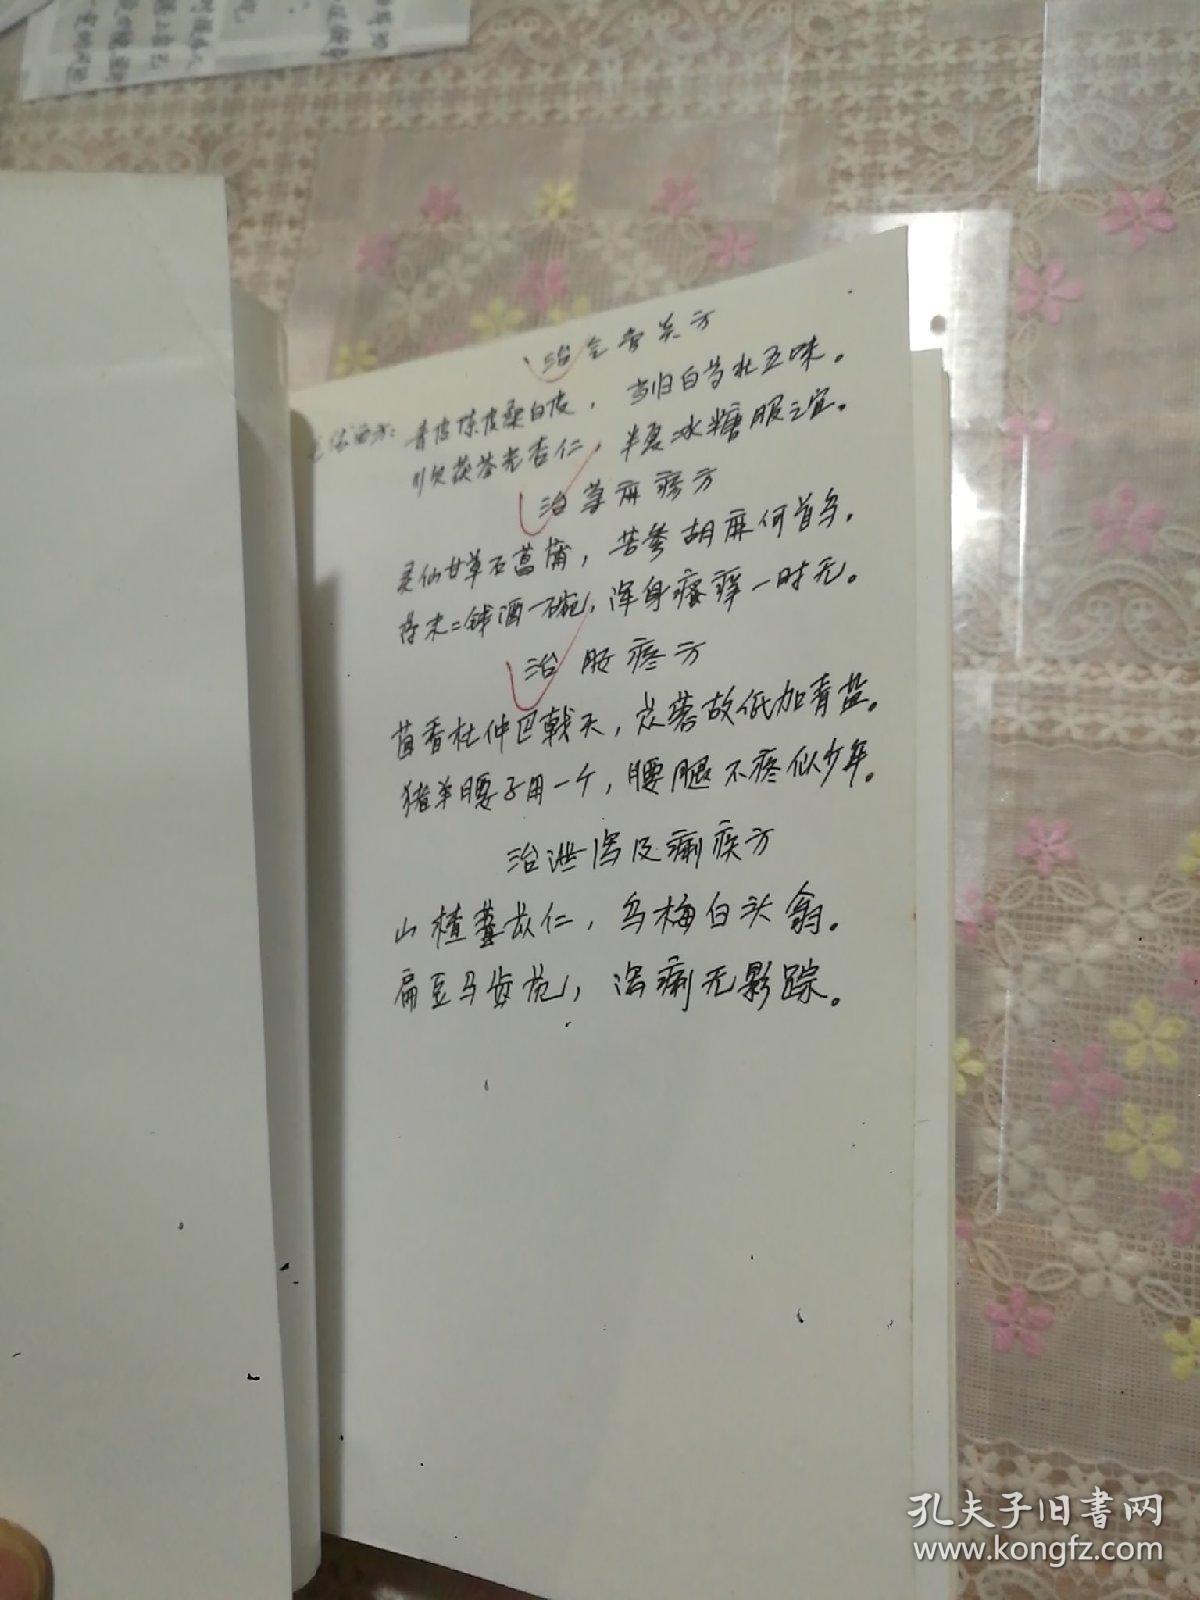 治气管炎方
青皮陈皮桑白皮，当归白芍北五味。
川贝茯苓光杏仁，半夏冰糖服之宜。
治荨麻疹方
灵仙甘草石菖蒲，苦参胡麻何首乌，
药末二钱酒一碗，浑身瘙痒一时无。
治 疼方
茴香杜仲巴戟天，苁蓉故低加青盐。
猪羊腰子用一个，腰腿不疼似少年。
治泄泻及痢疾方
山楂 仁，乌梅白头翁。
扁豆马齿苋，泻痢无影踪。
孔夫子旧书网
www.kongfz.com